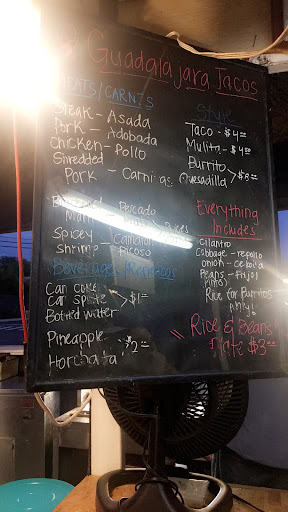 Guadalajara Tacos
MEATS/CARNES
Steak - Asada
Pork - Adobada
Chicken - Pollo
Shredded
Pork - Carnitas
Pescado
Spicey
Shrimp - Picoso
Beverages/Refrescos
Can coke
Can Sprite > $1
Bottled water
Pineapple
Horchata $2
Style
Taco - $4
Mulita - $4
Burrito
Quesadilla > $8
Everything
Includes
Cilantro
Cabbage - repollo
Onion - Cebolla
Beans - Frijol
Pinto
Rice for Burritos
only!
Rice & Beans
Plate $3